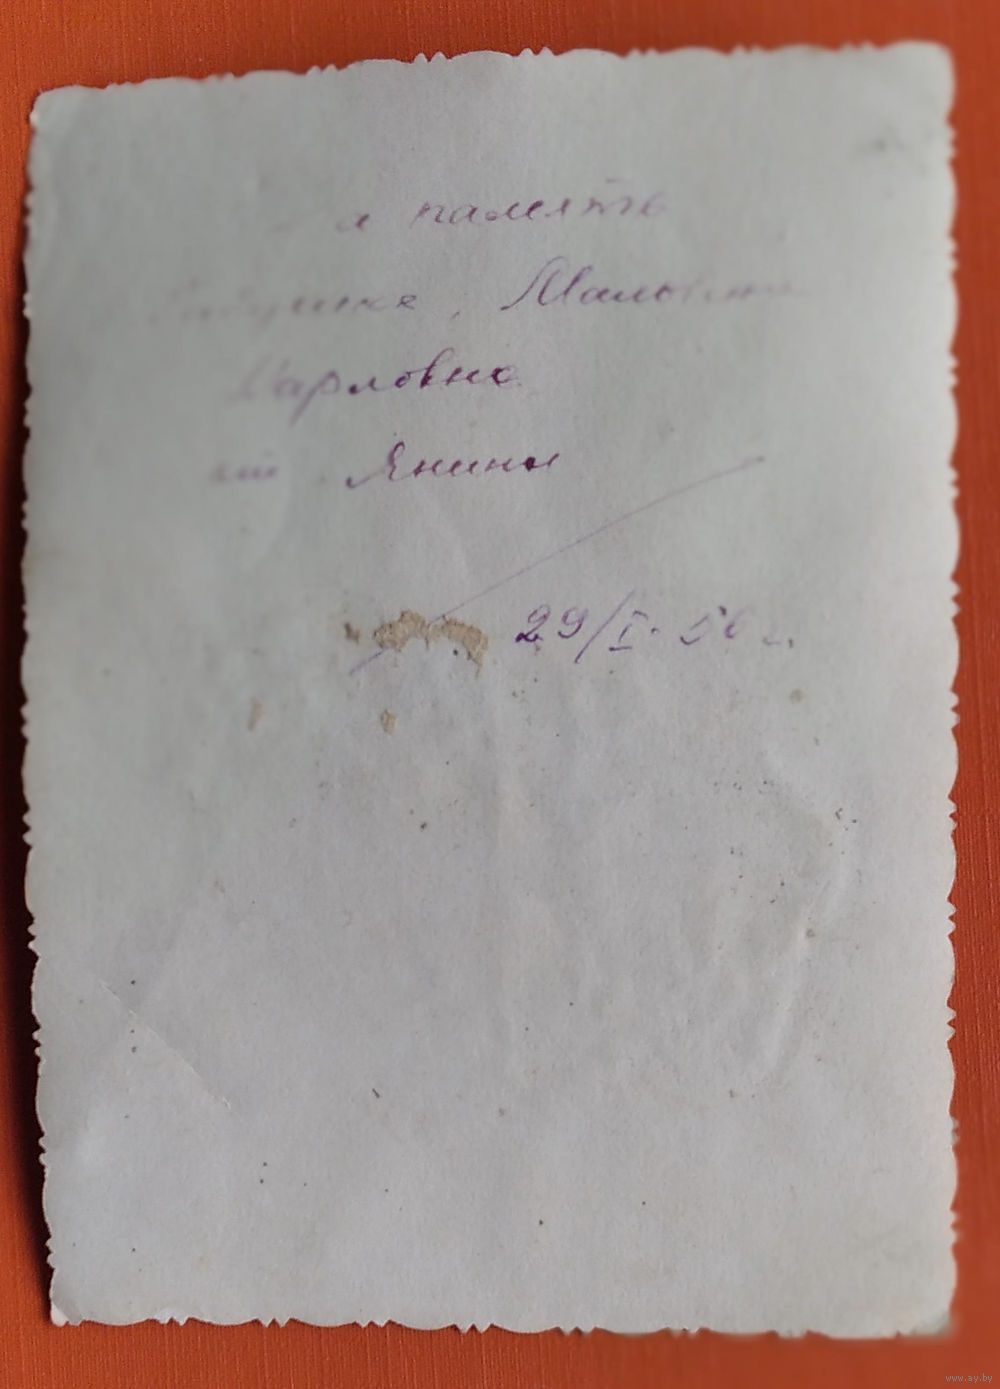 на память
бабушке, Мальвине
Карловне
от Янины
29/I. 56 г.
www.ay.by